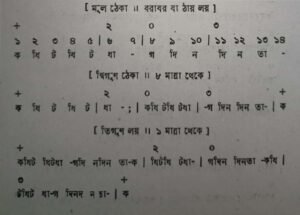 [ মূল ঠেকা ॥ বরাবর বা ঠায় লয় ]
+ ২ ০ ৩
১ ২ ৩ ৪ ৫ | ৬ ৭ | ৮ ৯ ১০ | ১১ ১২ ১৩ ১৪
ক ধি ট ধি ট ধা - গ দি ন দি ন তা -
[ দ্বিগুণ ঠেকা ॥ ৮ মাত্রা থেকে ]
+ ২ ০ ৩
ক ধি ট ধি ট | ধা - ; | কধি টধি টধা | -গ দিন দিন তা- | ক
[ তিগুণ লয় ॥ ১ মাত্রা থেকে ]
+ ২ ০
কধিট ধিটধা -গদি নদিন তা-ক | ধিটধি টধা- | গদিন দিনতা -কধি |
৩ +
টধিট ধা-গ দিনদি ন তা- | ক